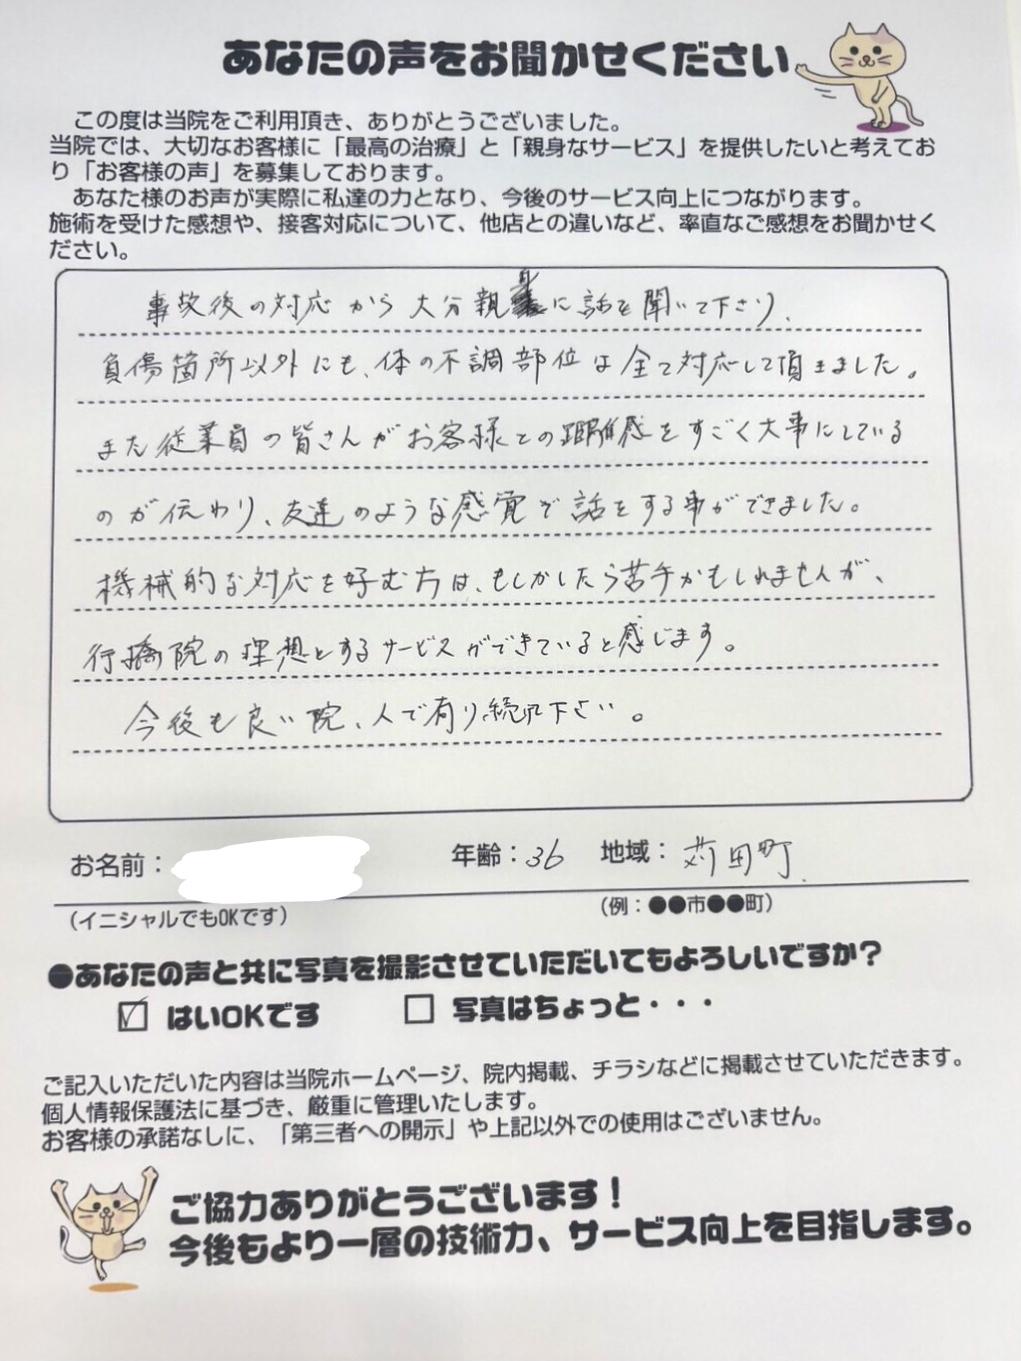 あなたの声をお聞かせください
この度は当院をご利用頂き、ありがとうございました。
当院では、大切なお客様に「最高の治療」と「親身なサービス」を提供したいと考えてお
り「お客様の声」を募集しております。
あなた様のお声が実際に私達の力となり、今後のサービス向上につながります。
施術を受けた感想や、接客対応について、他店との違いなど、率直なご感想をお聞かせく
ださい。
事故後の対応から大分親身に話を聞いて下さり、
負傷箇所以外にも、体の不調部位は全て対応して頂きました。
また従業員の皆さんがお客様との距離感をすごく大事にしている
のが伝わり、友達のような感覚で話をする事ができました。
機械的な対応を好む方は、もしかしたら苦手かもしれませんが、
行橋院の理想とするサービスができていると感じます。
今後も良い院、人で有り続け下さい。
お名前：
年齢：36 地域：苅田町
（イニシャルでもOKです） （例：●●市●●町）
●あなたの声と共に写真を撮影させていただいてもよろしいですか？
☑ はいOKです □ 写真はちょっと・・・
ご記入いただいた内容は当院ホームページ、院内掲載、チラシなどに掲載させていただきます。
個人情報保護法に基づき、厳重に管理いたします。
お客様の承諾なしに、「第三者への開示」や上記以外での使用はございません。
ご協力ありがとうございます！
今後もより一層の技術力、サービス向上を目指します。